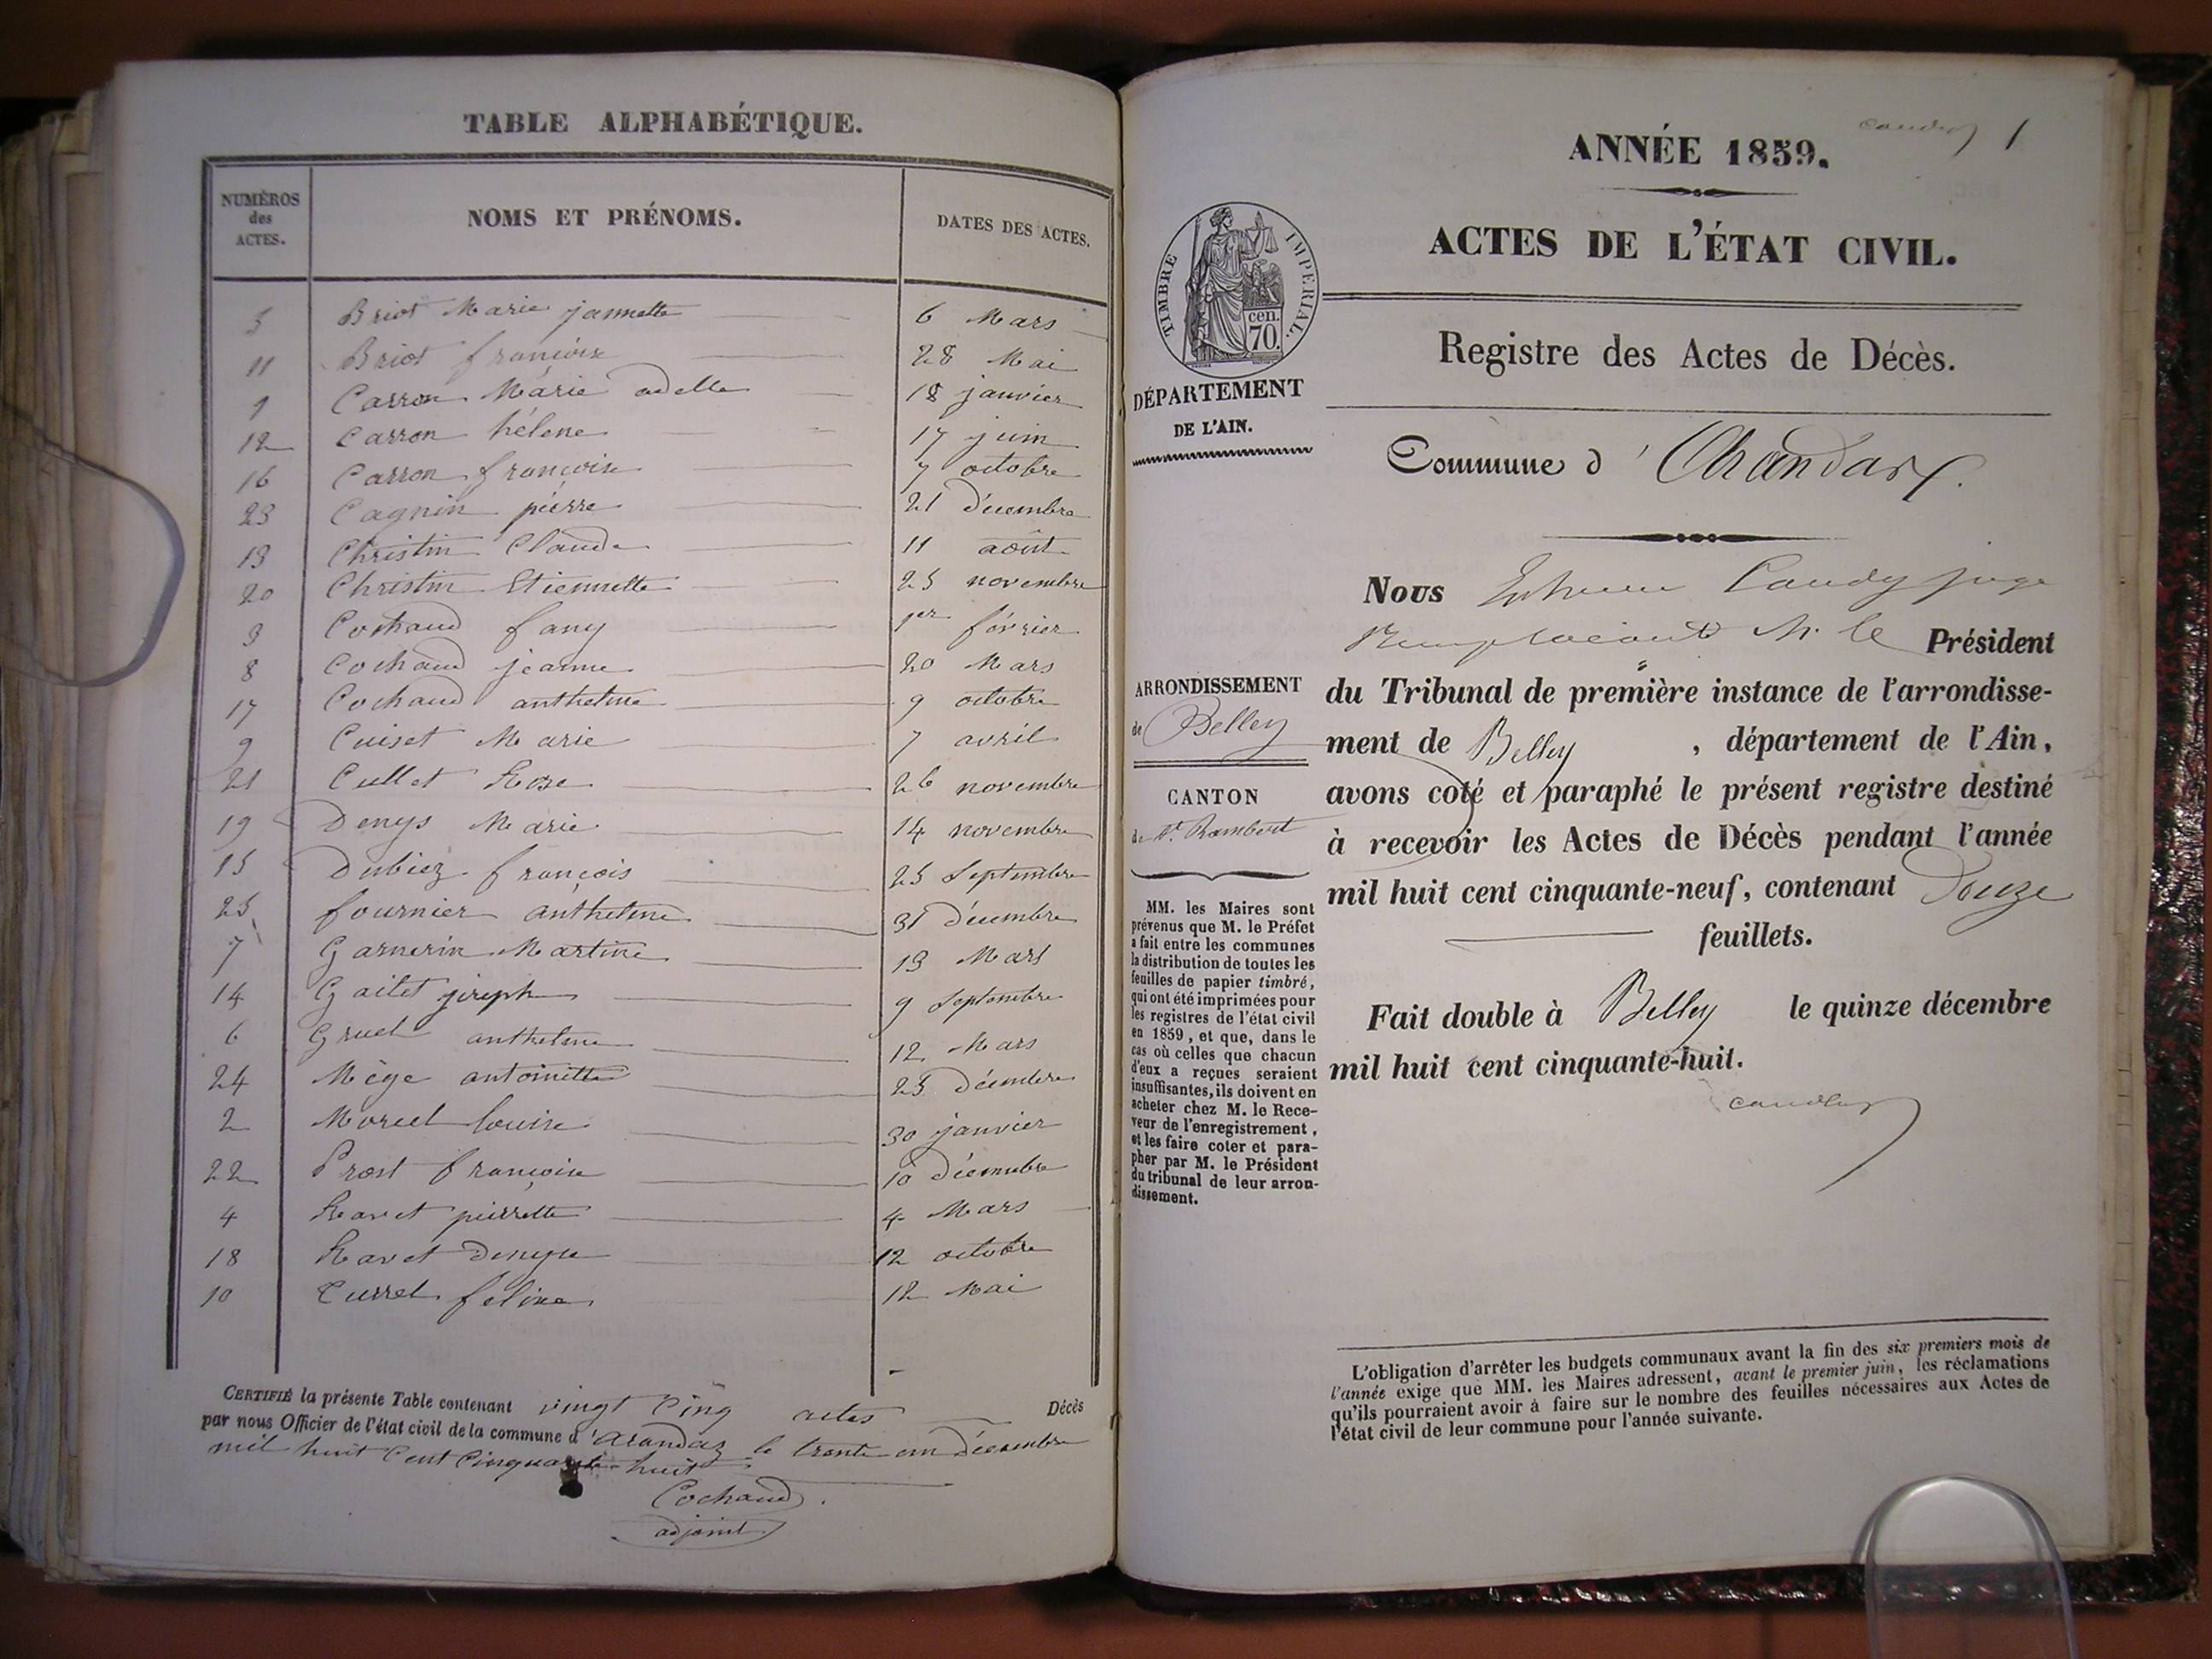 TABLE ALPHABÉTIQUE.
NUMÉROS des ACTES. NOMS ET PRÉNOMS. DATES DES ACTES.
5 Briot Marie jannette 6 Mars
11 Briot françoise 28 Mai
1 Carron Marie adelle 18 janvier
12 Carron hélene 17 juin
16 Carron françoise 7 octobre
23 Cagnin pierre 21 décembre
13 Christin Claude 11 août
20 Christin Etiennette 25 novembre
3 Cochaud fany 1er février
8 Cochaud jeanne 20 Mars
17 Cochaud anthelme 9 octobre
9 Cuiset Marie 7 avril
21 Cullet Rose 26 novembre
19 Denys Marie 14 novembre
15 Dubiez françois 25 Septembre
25 fournier anthelme 31 décembre
7 Garnerin Martine 13 Mars
14 Gaitet joseph 9 Septembre
6 Gruel anthelme 12 Mars
24 Mège antoinette 23 décembre
2 Morel louise 30 janvier
22 Prost françoise 10 décembre
4 Ravet pierrette 4 Mars
18 Ravet Denyse 12 octobre
10 Currel felise 12 Mai
CERTIFIÉ la présente Table contenant vingt cinq actes Décès
par nous Officier de l'état civil de la commune d'Arandaz le trente un décembre
mil huit cent cinquante-huit
Cochaud
adjoint
caudy 1
ANNÉE 1859.
ACTES DE L'ÉTAT CIVIL.
TIMBRE IMPERIAL.
cen.
70.
Registre des Actes de Décès.
DÉPARTEMENT
DE L'AIN.
Commune d'
Nous Caudy juge
Remplaçant M. le Président
ARRONDISSEMENT
de Belley
du Tribunal de première instance de l'arrondisse-
ment de Belley, département de l'Ain,
CANTON
de St. Rambert
avons coté et paraphé le présent registre destiné
à recevoir les Actes de Décès pendant l'année
mil huit cent cinquante-neuf, contenant Douze
feuillets.
MM. les Maires sont
prévenus que M. le Préfet
a fait entre les communes
la distribution de toutes les
feuilles de papier timbré,
qui ont été imprimées pour
les registres de l'état civil
en 1859, et que, dans le
cas où celles que chacun
d'eux a reçues seraient
insuffisantes, ils doivent en
acheter chez M. le Rece-
veur de l'enregistrement,
et les faire coter et para-
pher par M. le Président
du tribunal de leur arron-
dissement.
Fait double à Belley le quinze décembre
mil huit cent cinquante-huit.
caudy
L'obligation d'arrêter les budgets communaux avant la fin des six premiers mois de
l'année exige que MM. les Maires adressent, avant le premier juin, les réclamations
qu'ils pourraient avoir à faire sur le nombre des feuilles nécessaires aux Actes de
l'état civil de leur commune pour l'année suivante.